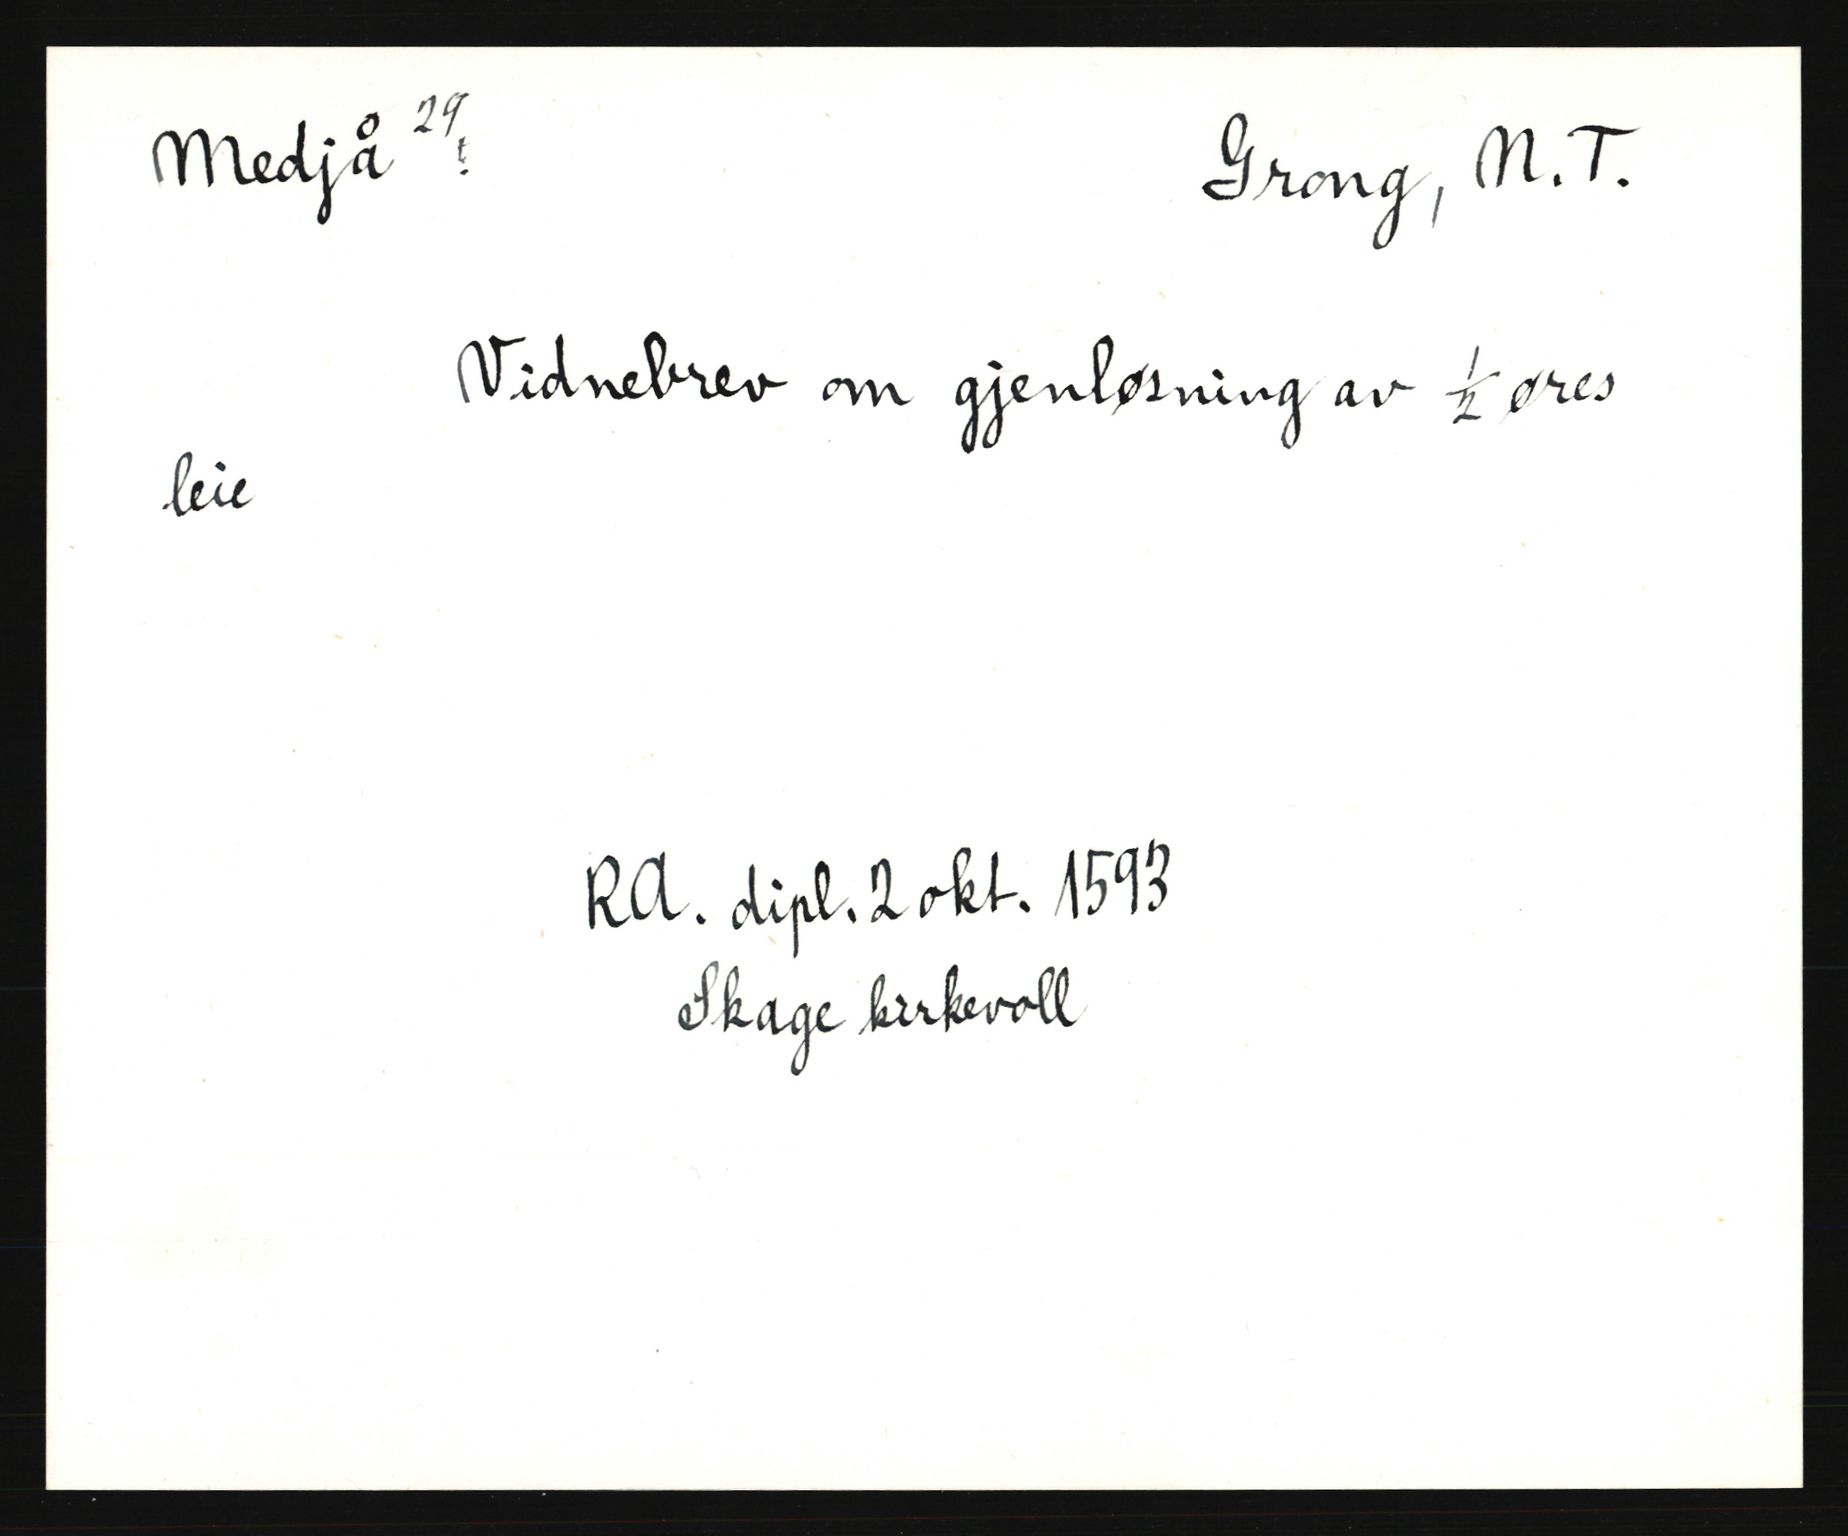 Medjå 29 Grong, N.T.
Vidnebrev om gjenløsning av ½ øres
leie
RA. dipl. 2 okt. 1593
Skage kirkevoll